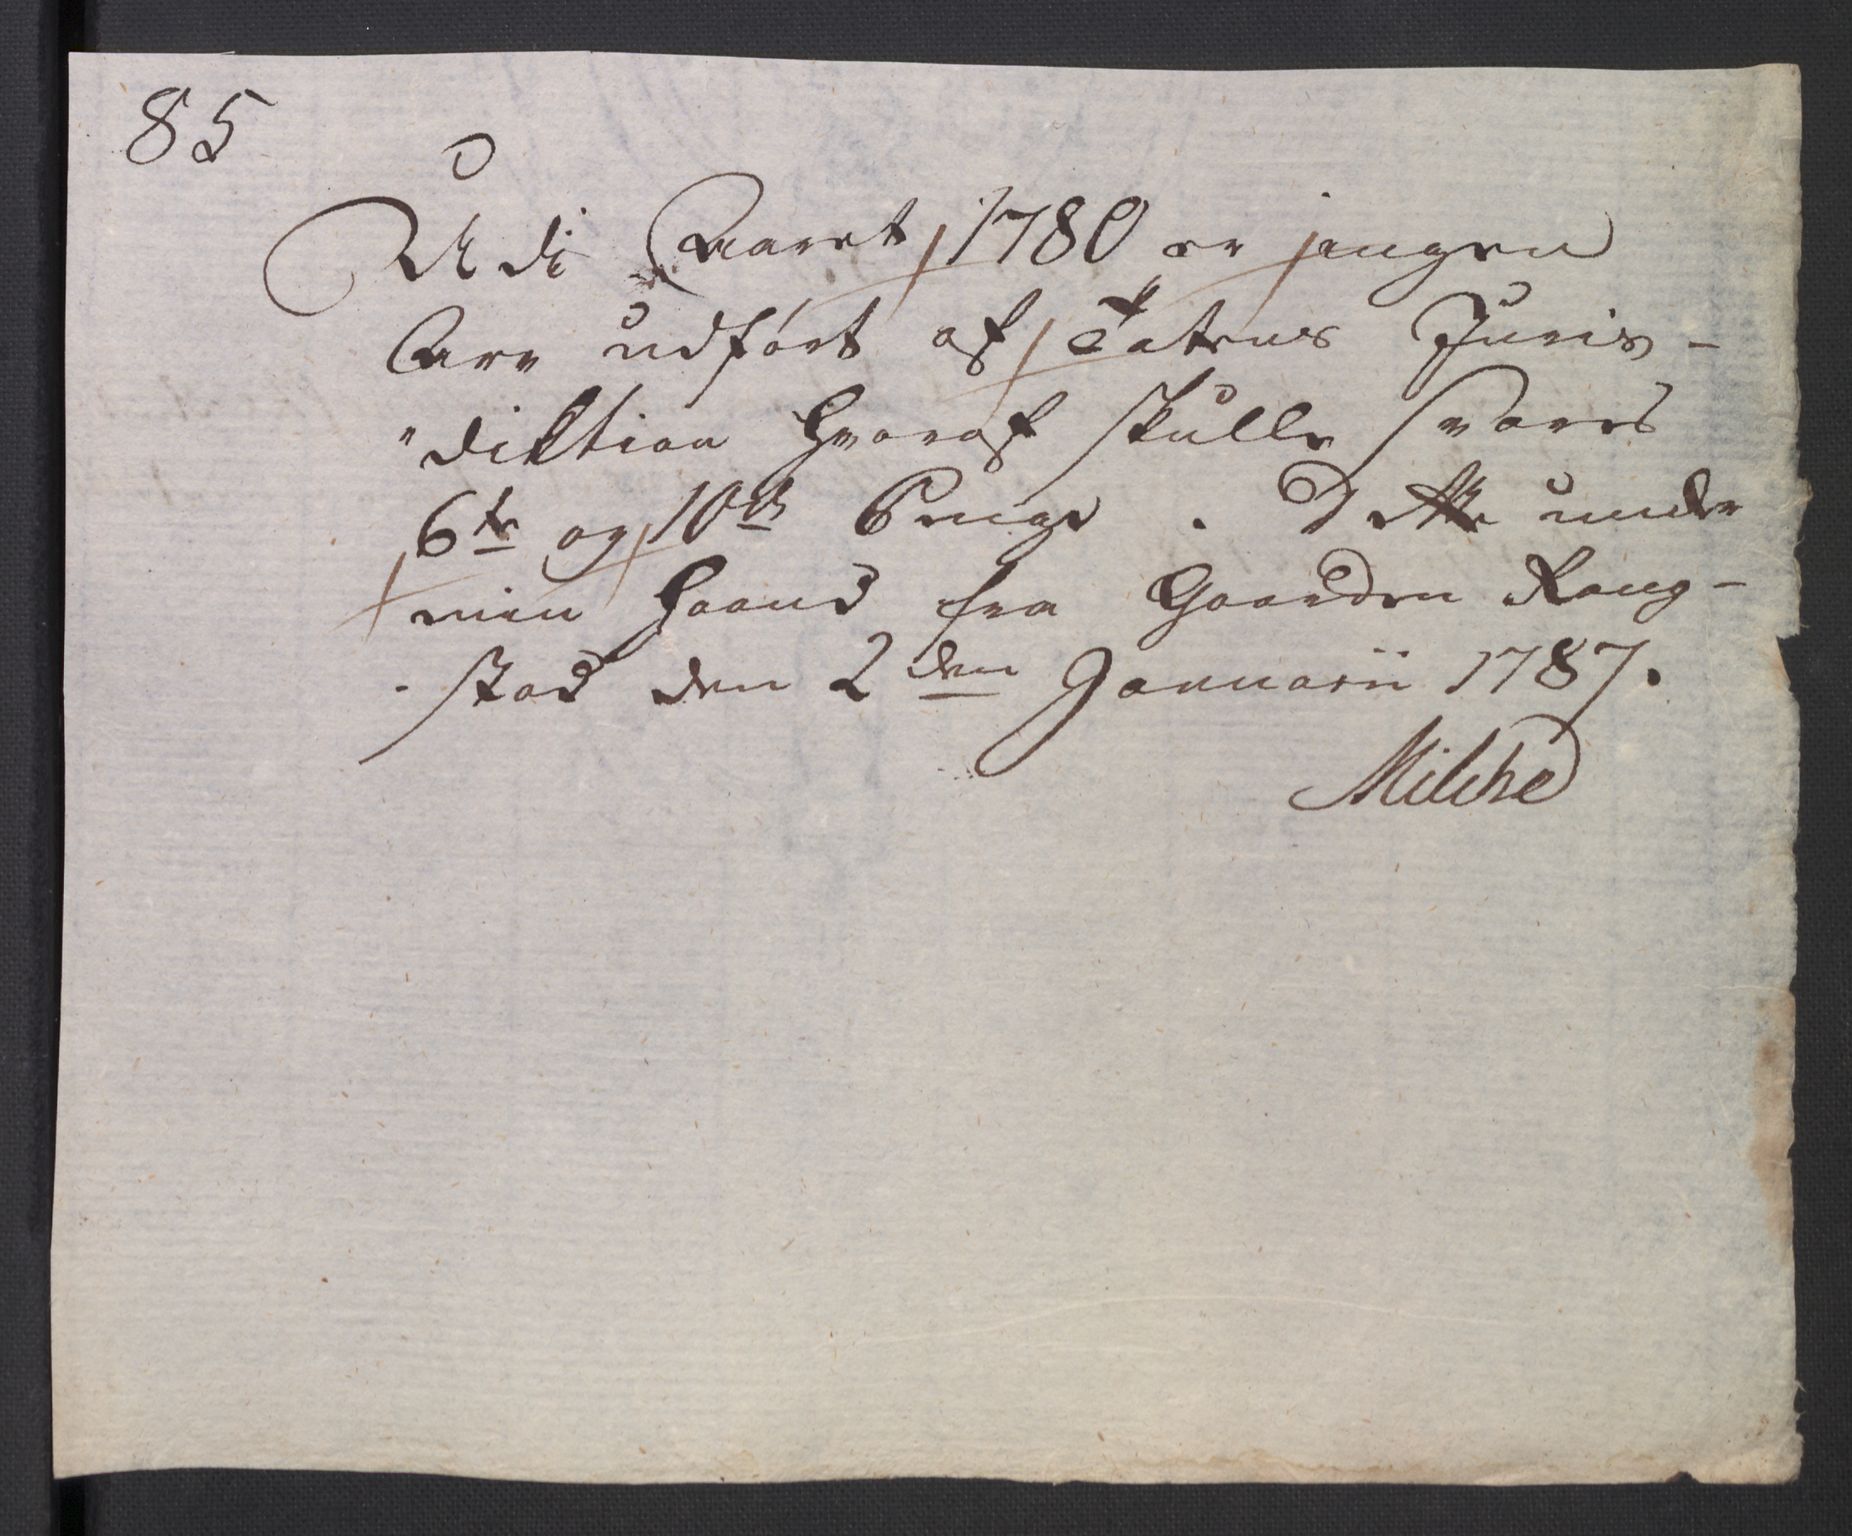 85
Udi Aaret 1780 er jngen
Arv udført af Tatens Juris-
diktion hvoraf skulle svares
6te og 10de Penge. Dette under
min Haand fra Gaarden Rang-
stad den 2den Januarii 1787.
Milche